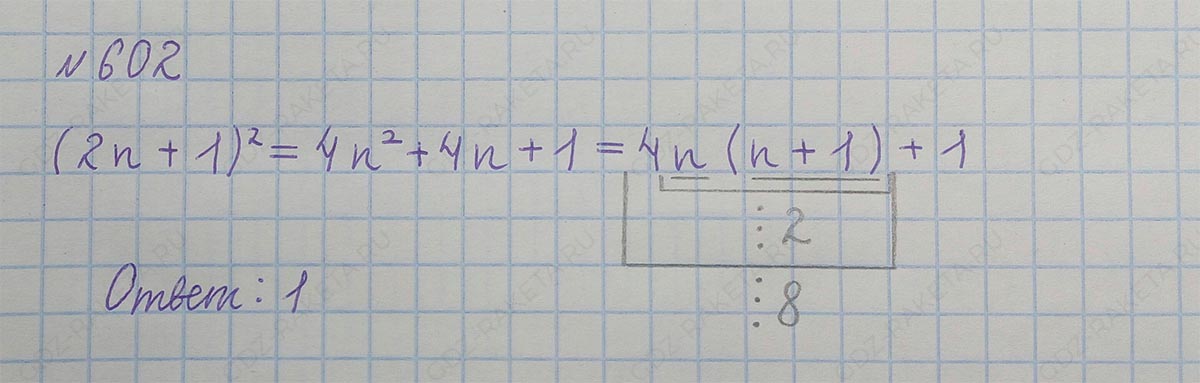 №602
(2n + 1)² = 4n² + 4n + 1 = 4n (n + 1) + 1
⋮ 2
Ответ: 1
⋮ 8
GDZ-RAKETA.RU